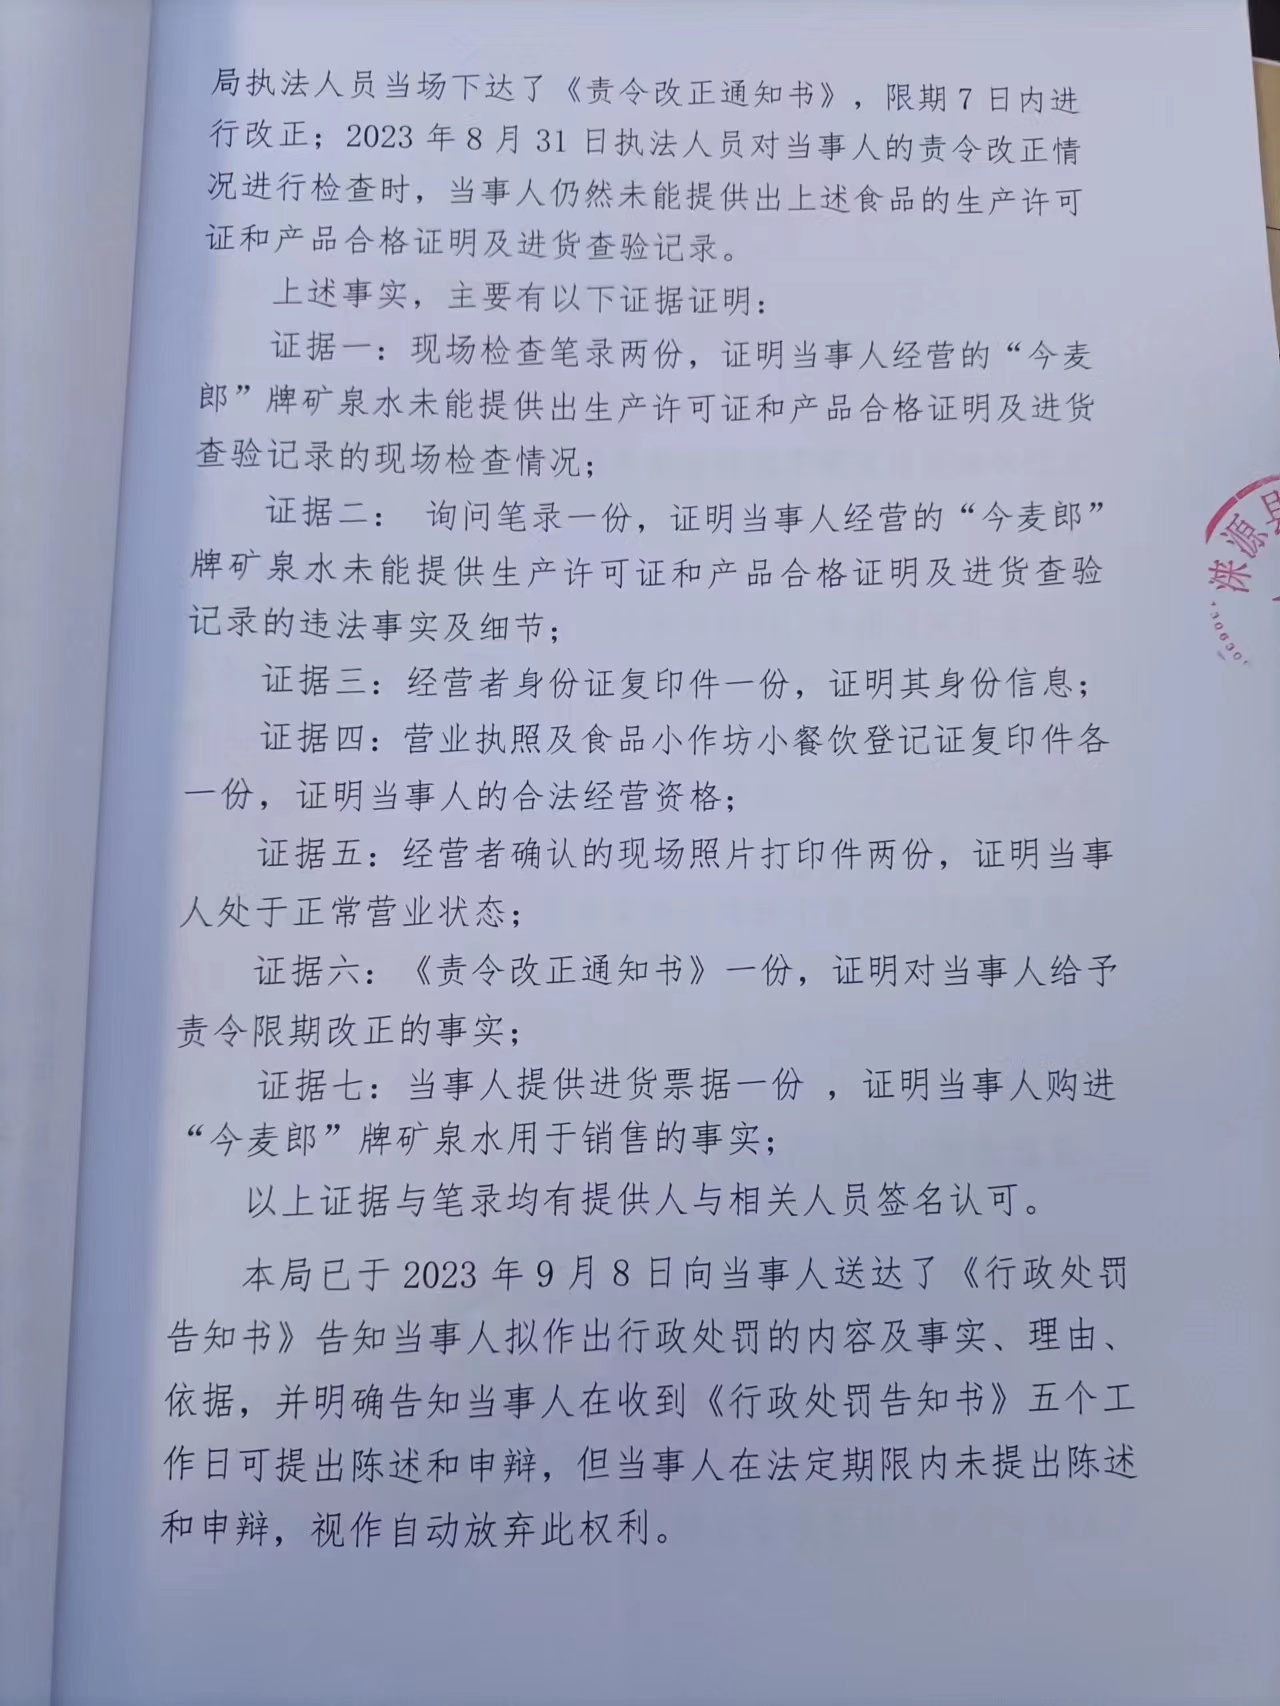 局执法人员当场下达了《责令改正通知书》，限期7日内进
行改正；2023年8月31日执法人员对当事人的责令改正情
况进行检查时，当事人仍然未能提供出上述食品的生产许可
证和产品合格证明及进货查验记录。
上述事实，主要有以下证据证明：
证据一：现场检查笔录两份，证明当事人经营的“今麦
郎”牌矿泉水未能提供出生产许可证和产品合格证明及进货
查验记录的现场检查情况；
证据二： 询问笔录一份，证明当事人经营的“今麦郎”
牌矿泉水未能提供生产许可证和产品合格证明及进货查验
记录的违法事实及细节；
证据三：经营者身份证复印件一份，证明其身份信息；
证据四：营业执照及食品小作坊小餐饮登记证复印件各
一份，证明当事人的合法经营资格；
证据五：经营者确认的现场照片打印件两份，证明当事
人处于正常营业状态；
证据六：《责令改正通知书》一份，证明对当事人给予
责令限期改正的事实；
证据七：当事人提供进货票据一份 ，证明当事人购进
“今麦郎”牌矿泉水用于销售的事实；
以上证据与笔录均有提供人与相关人员签名认可。
本局已于2023年9月8日向当事人送达了《行政处罚
告知书》告知当事人拟作出行政处罚的内容及事实、理由、
依据，并明确告知当事人在收到《行政处罚告知书》五个工
作日可提出陈述和申辩，但当事人在法定期限内未提出陈述
和申辩，视作自动放弃此权利。
涞源县